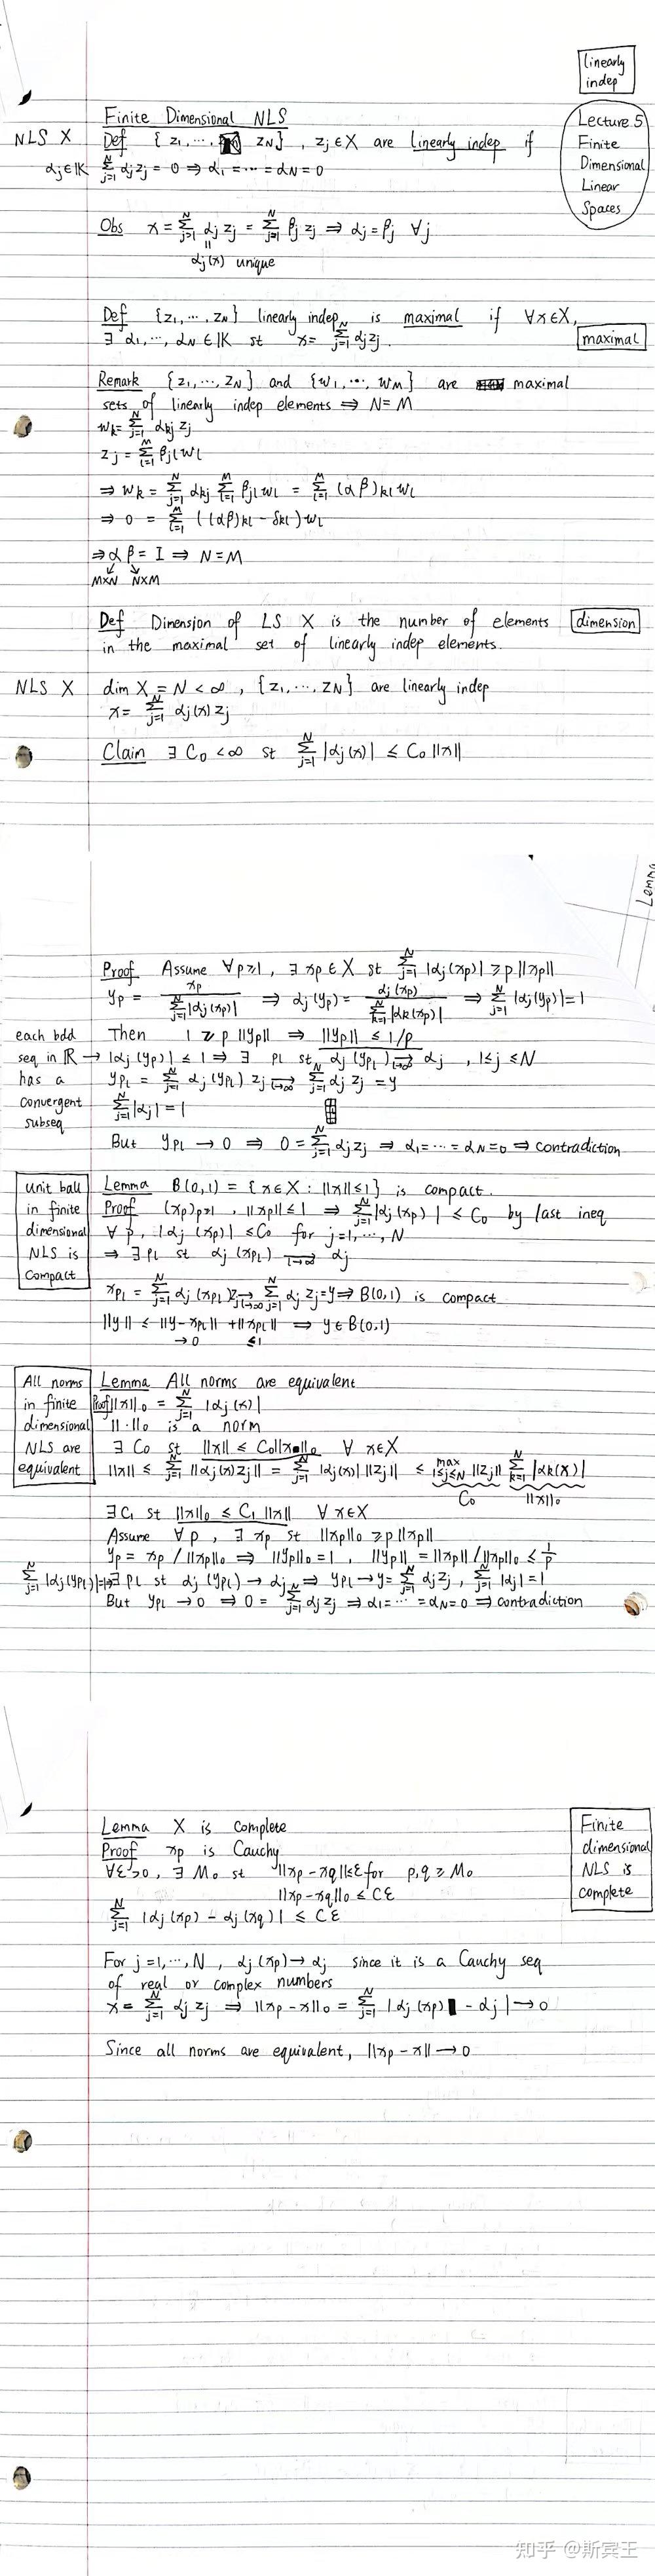 linearly
indep
Lecture 5
Finite
Dimensional
Linear
Spaces
Finite Dimensional NLS
NLS X Def {z₁, ⋯, z_N}, z_j ∈ X are linearly indep if
α_j ∈ 𝕂 Σ_{j=1}^N α_j z_j = 0 ⇒ α₁ = ⋯ = α_N = 0
Obs x = Σ_{j=1}^N α_j z_j = Σ_{j=1}^N β_j z_j ⇒ α_j = β_j ∀j
||
α_j(x) unique
Def {z₁, ⋯, z_N} linearly indep is maximal if ∀x∈X,
∃ α₁, ⋯, α_N ∈ 𝕂 st x = Σ_{j=1}^N α_j z_j
maximal
Remark {z₁, ⋯, z_N} and {w₁, ⋯, w_M} are maximal
sets of linearly indep elements ⇒ N = M
w_k = Σ_{j=1}^N α_kj z_j
z_j = Σ_{l=1}^M β_jl w_l
⇒ w_k = Σ_{j=1}^N α_kj Σ_{l=1}^M β_jl w_l = Σ_{l=1}^M (αβ)_kl w_l
⇒ 0 = Σ_{l=1}^M ((αβ)_kl − δ_kl) w_l
⇒ α β = I ⇒ N = M
M×N N×M
Def Dimension of LS X is the number of elements
in the maximal set of linearly indep elements.
dimension
NLS X dim X = N < ∞, {z₁, ⋯, z_N} are linearly indep
x = Σ_{j=1}^N α_j(x) z_j
Claim ∃ C₀ < ∞ st Σ_{j=1}^N |α_j(x)| ≤ C₀ ||x||
Proof Assume ∀p≥1, ∃ x_p ∈ X st Σ_{j=1}^N |α_j(x_p)| ≥ p ||x_p||
y_p = x_p / Σ_{j=1}^N |α_j(x_p)| ⇒ α_j(y_p) = α_j(x_p) / Σ_{k=1}^N |α_k(x_p)| ⇒ Σ_{j=1}^N |α_j(y_p)| = 1
Then 1 ≥ p ||y_p|| ⇒ ||y_p|| ≤ 1/p
each bdd
seq in ℝ → |α_j(y_p)| ≤ 1 ⇒ ∃ p_l st α_j(y_{p_l}) →_{l→∞} α_j, 1 ≤ j ≤ N
has a
convergent
subseq
y_{p_l} = Σ_{j=1}^N α_j(y_{p_l}) z_j →_{l→∞} Σ_{j=1}^N α_j z_j = y
Σ_{j=1}^N |α_j| = 1
But y_{p_l} → 0 ⇒ 0 = Σ_{j=1}^N α_j z_j ⇒ α₁ = ⋯ = α_N = 0 ⇒ contradiction
unit ball
in finite
dimensional
NLS is
compact
Lemma B(0,1) = {x∈X : ||x|| ≤ 1} is compact.
Proof (x_p)_{p≥1}, ||x_p|| ≤ 1 ⇒ Σ_{j=1}^N |α_j(x_p)| ≤ C₀ by last ineq
∀ p, |α_j(x_p)| ≤ C₀ for j=1, ⋯, N
⇒ ∃ p_l st α_j(x_{p_l}) →_{l→∞} α_j
x_{p_l} = Σ_{j=1}^N α_j(x_{p_l}) z_j →_{l→∞} Σ_{j=1}^N α_j z_j = y ⇒ B(0,1) is compact
||y|| ≤ ||y − x_{p_l}|| + ||x_{p_l}|| ⇒ y ∈ B(0,1)
→0 ≤1
All norms
in finite
dimensional
NLS are
equivalent
Lemma All norms are equivalent
Proof ||x||₀ = Σ_{j=1}^N |α_j(x)|
||·||₀ is a norm
∃ C₀ st ||x|| ≤ C₀||x||₀ ∀ x∈X
||x|| ≤ Σ_{j=1}^N ||α_j(x) z_j|| = Σ_{j=1}^N |α_j(x)| ||z_j|| ≤ max_{1≤j≤N} ||z_j|| Σ_{k=1}^N |α_k(x)|
C₀ ||x||₀
∃ C₁ st ||x||₀ ≤ C₁ ||x|| ∀ x∈X
Assume ∀ p, ∃ x_p st ||x_p||₀ ≥ p ||x_p||
y_p = x_p / ||x_p||₀ ⇒ ||y_p||₀ = 1, ||y_p|| = ||x_p|| / ||x_p||₀ ≤ 1/p
Σ_{j=1}^N |α_j(y_{p_l})| = 1 ⇒ ∃ p_l st α_j(y_{p_l}) → α_j ⇒ y_{p_l} → y = Σ_{j=1}^N α_j z_j, Σ_{j=1}^N |α_j| = 1
But y_{p_l} → 0 ⇒ 0 = Σ_{j=1}^N α_j z_j ⇒ α₁ = ⋯ = α_N = 0 ⇒ contradiction
Lemma X is complete
Proof x_p is Cauchy
∀ε>0, ∃ M₀ st ||x_p − x_q|| ≤ ε for p,q ≥ M₀
||x_p − x_q||₀ ≤ Cε
Σ_{j=1}^N |α_j(x_p) − α_j(x_q)| ≤ Cε
Finite
dimensional
NLS is
complete
For j=1, ⋯, N, α_j(x_p) → α_j since it is a Cauchy seq
of real or complex numbers
x = Σ_{j=1}^N α_j z_j ⇒ ||x_p − x||₀ = Σ_{j=1}^N |α_j(x_p) − α_j| → 0
Since all norms are equivalent, ||x_p − x|| → 0
知乎 @斯宾王